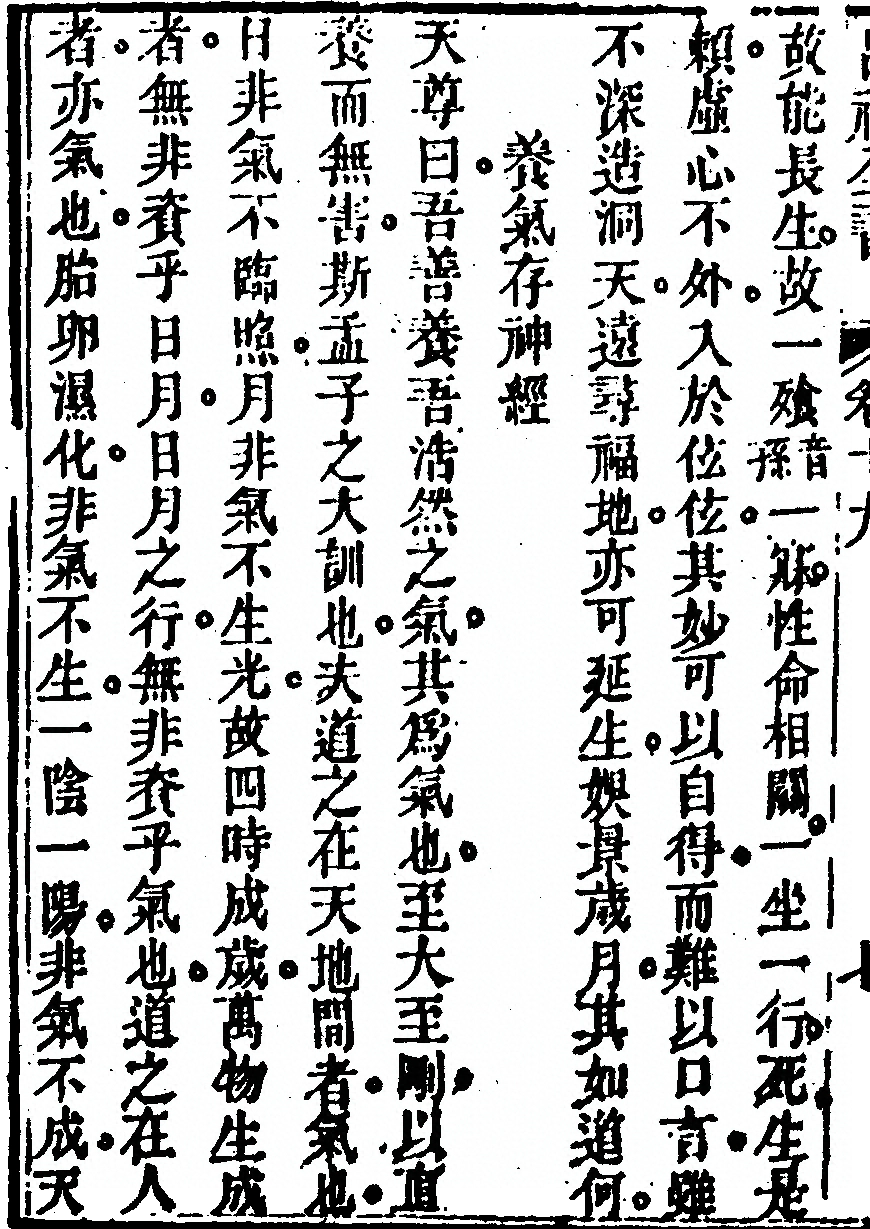 故能長生故一飱音孫一寐性命相關一坐一行死生是
賴虛心不外入於伭伭其妙可以自得而難以口言雖
不深造洞天遠尋福地亦可延生娛景歲月其如道何
養氣存神經
天尊曰吾善養吾浩然之氣其爲氣也至大至剛以直
養而無害斯孟子之大訓也夫道之在天地間者氣也
日非氣不臨照月非氣不生光故四時成歲萬物生成
者無非資乎日月日月之行無非資乎氣也道之在人
者亦氣也胎卵濕化非氣不生一陰一陽非氣不成天